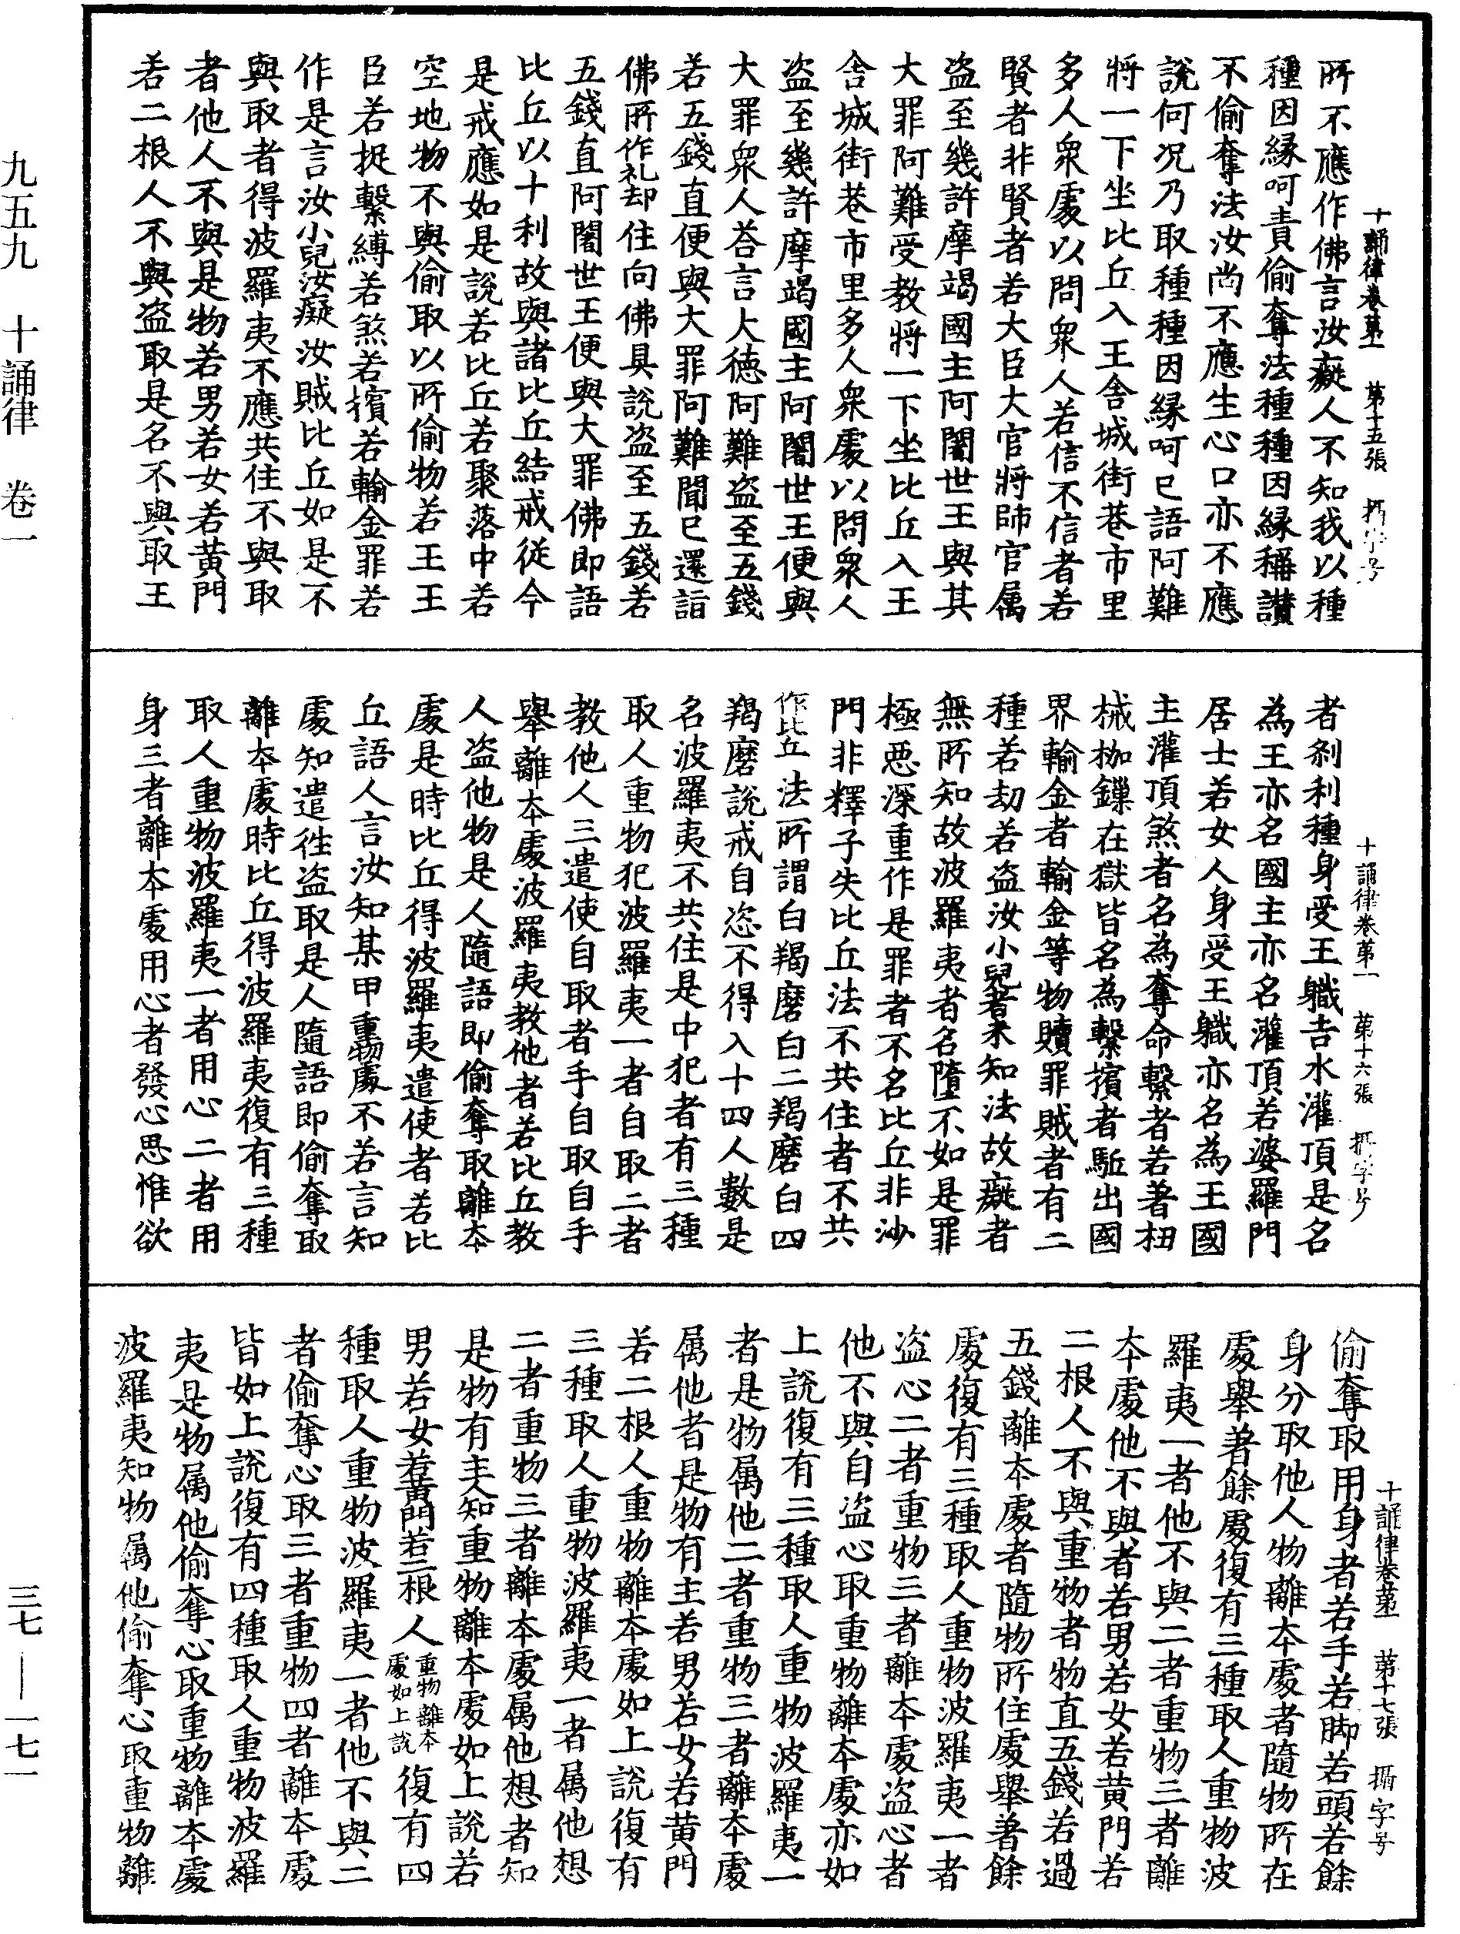 九五九　十誦律　卷一
三七—一七一
十誦律卷第一　第十五張　攝字号
所不應作佛言汝癡人不知我以種
種因緣呵責偷奪法種種因緣稱讃
不偷奪法汝尚不應生心口亦不應
說何况乃取種種因緣呵已語阿難
將一下坐比丘入王舍城街巷市里
多人衆處以問衆人若信不信者若
賢者非賢者若大臣大官將帥官属
盗至幾許摩竭國主阿闍世王與其
大罪阿難受教將一下坐比丘入王
舍城街巷市里多人衆處以問衆人
盗至幾許摩竭國主阿闍世王便與
大罪衆人荅言大德阿難盗至五錢
若五錢直便與大罪阿難聞已還詣
佛所作礼却住向佛具說盗至五錢若
五錢直阿闍世王便與大罪佛即語
比丘以十利故與諸比丘結戒從今
是戒應如是說若比丘若聚落中若
空地物不與偷取以所偷物若王王
臣若捉繫縛若煞若擯若輸金罪若
作是言汝小兒汝癡汝賊比丘如是不
與取者得波羅夷不應共住不與取
者他人不與是物若男若女若黄門
若二根人不與盗取是名不與取王
十誦律卷第一　第十六張　攝字号
者刹利種身受王職吉水灌頂是名
為王亦名國主亦名灌頂若婆羅門
居士若女人身受王職亦名為王國
主灌頂煞者名為奪命繫者若著杻
械枷鏁在獄皆名為繫擯者駈出國
界輸金者輸金等物贖罪賊者有二
種若劫若盗汝小兒者不知法故癡者
無所知故波羅夷者名墮不如是罪
極惡深重作是罪者不名比丘非沙
門非釋子失比丘法不共住者不共
作比丘法所謂白羯磨白二羯磨白四
羯磨說戒自恣不得入十四人數是
名波羅夷不共住是中犯者有三種
取人重物犯波羅夷一者自取二者
教他人三遣使自取者手自取自手
舉離本處波羅夷教他者若比丘教
人盗他物是人隨語即偷奪取離本
處是時比丘得波羅夷遣使者若比
丘語人言汝知某甲重物處不若言知
處知遣徃盗取是人隨語即偷奪取
離本處時比丘得波羅夷復有三種
取人重物波羅夷一者用心二者用
身三者離本處用心者發心思惟欲
十誦律卷第一　第十七張　攝字号
偷奪取用身者若手若脚若頭若餘
身分取他人物離本處者隨物所在
處舉著餘處復有三種取人重物波
羅夷一者他不與二者重物三者離
本處他不與者若男若女若黄門若
二根人不與重物者物直五錢若過
五錢離本處者隨物所住處舉著餘
處復有三種取人重物波羅夷一者
盗心二者重物三者離本處盗心者
他不與自盗心取重物離本處亦如
上說復有三種取人重物波羅夷一
者是物属他二者重物三者離本處
属他者是物有主若男若女若黄門
若二根人重物離本處如上說復有
三種取人重物波羅夷一者属他想
二者重物三者離本處属他想者知
是物有主知重物離本處如上說若
男若女若黄門若二根人重物離本處如上說復有四
種取人重物波羅夷一者他不與二
者偷奪心取三者重物四者離本處
皆如上說復有四種取人重物波羅
夷是物属他偷奪心取重物離本處
波羅夷知物属他偷奪心取重物離